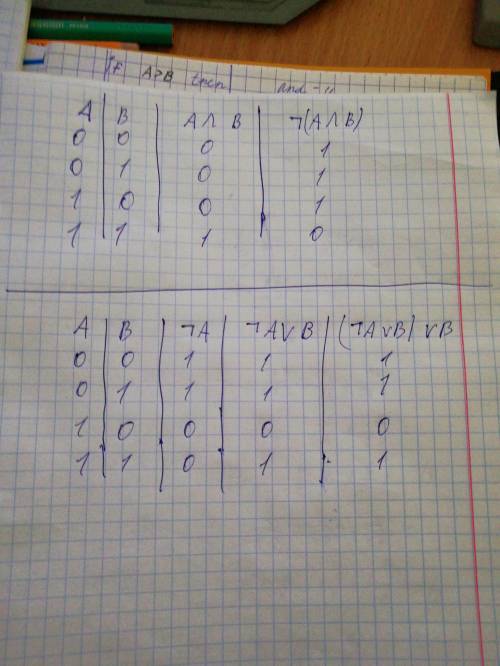 if A>B then
A B A∧B ¬(A∧B)
0 0 0 1
0 1 0 1
1 0 0 1
1 1 1 0
A B ¬A ¬A∨B (¬A∨B)∨B
0 0 1 1 1
0 1 1 1 1
1 0 0 0 0
1 1 0 1 1